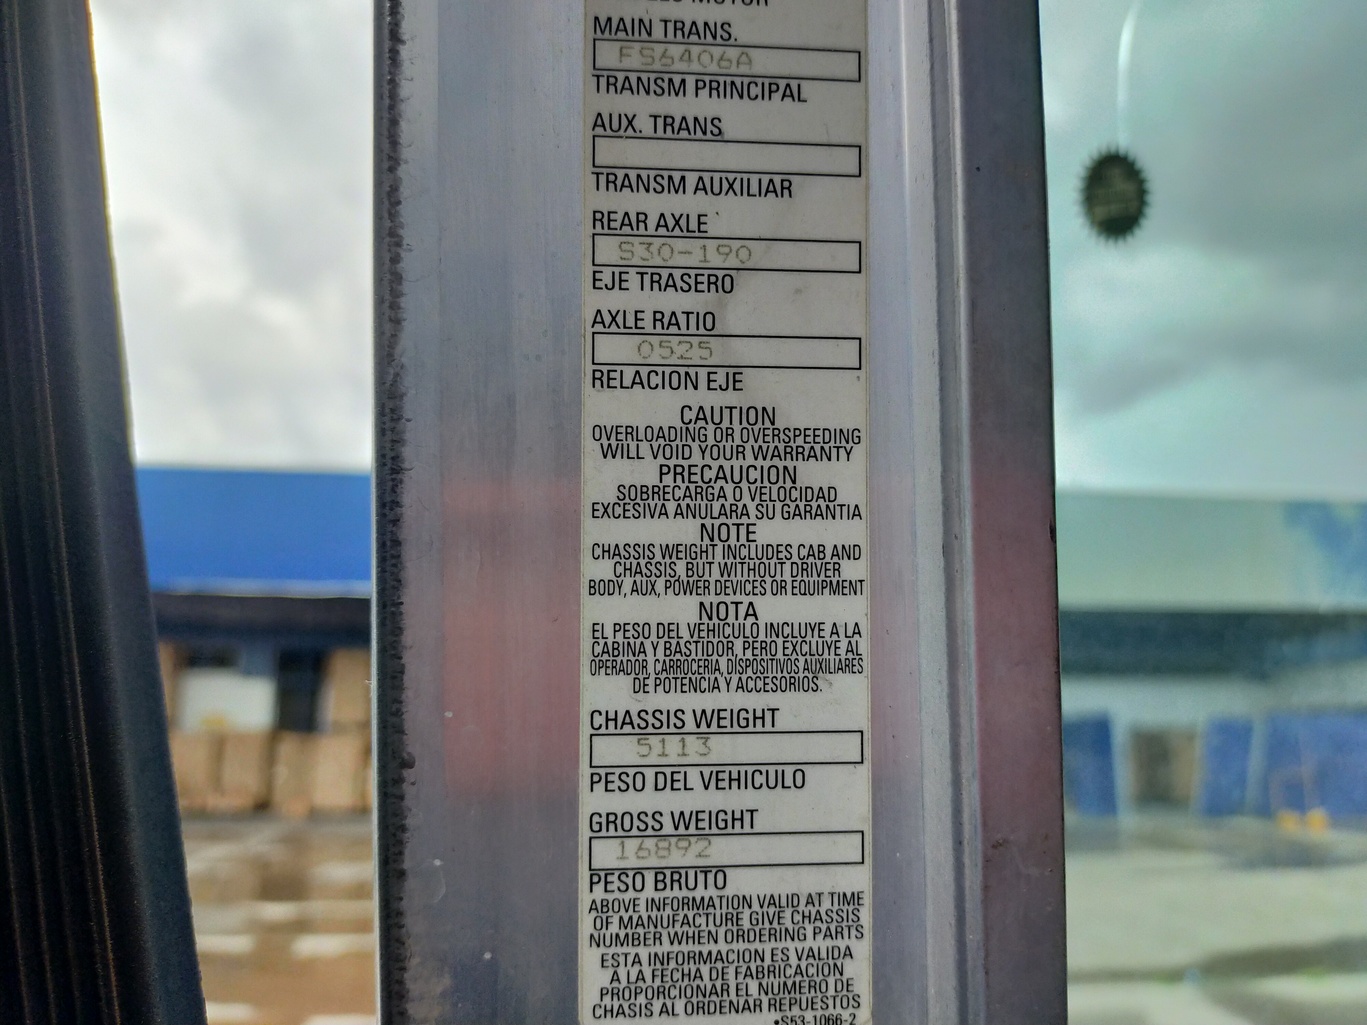 MOTOR
MAIN TRANS.
FS6406A
TRANSM PRINCIPAL
AUX. TRANS
TRANSM AUXILIAR
REAR AXLE
S30-190
EJE TRASERO
AXLE RATIO
0525
RELACION EJE
CAUTION
OVERLOADING OR OVERSPEEDING
WILL VOID YOUR WARRANTY
PRECAUCION
SOBRECARGA O VELOCIDAD
EXCESIVA ANULARA SU GARANTIA
NOTE
CHASSIS WEIGHT INCLUDES CAB AND
CHASSIS, BUT WITHOUT DRIVER
BODY, AUX, POWER DEVICES OR EQUIPMENT
NOTA
EL PESO DEL VEHICULO INCLUYE A LA
CABINA Y BASTIDOR, PERO EXCLUYE AL
OPERADOR, CARROCERIA, DISPOSITIVOS AUXILIARES
DE POTENCIA Y ACCESORIOS.
CHASSIS WEIGHT
5113
PESO DEL VEHICULO
GROSS WEIGHT
16892
PESO BRUTO
ABOVE INFORMATION VALID AT TIME
OF MANUFACTURE GIVE CHASSIS
NUMBER WHEN ORDERING PARTS
ESTA INFORMACION ES VALIDA
A LA FECHA DE FABRICACION
PROPORCIONAR EL NUMERO DE
CHASIS AL ORDENAR REPUESTOS
•S53-1066-2